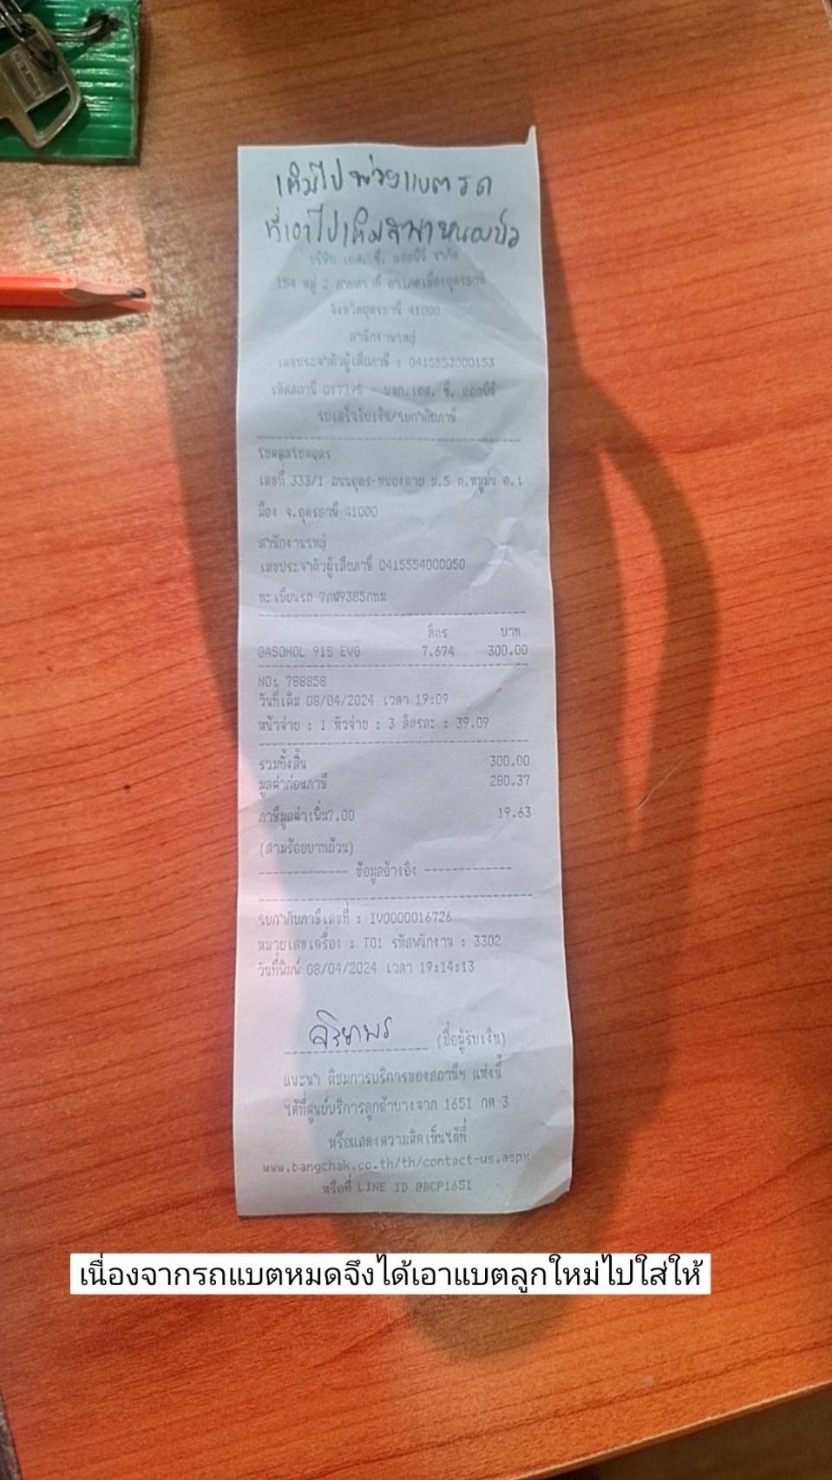 เติมไปพ่วงแบตรถ
ที่เอาไปเติมลิพาหนองบัว
บริษัท เอส. ซี. แอลพีจี จำกัด
154 หมู่ 2 อำเภอเมืองอุดรธานี
จังหวัดอุดรธานี 41000
สำนักงานใหญ่
เลขประจำตัวผู้เสียภาษี : 0415553000153
รหัสสถานี 017398 - บจก.เอส. ซี. แอลพีจี
ใบเสร็จรับเงิน/ใบกำกับภาษี
โชคคูณโชคอุดร
เลขที่ 333/1 ถนนอุดร-หนองคาย ม.5 ต.หมูม่น อ.เ
มือง จ.อุดรธานี 41000
สำนักงานใหญ่
เลขประจำตัวผู้เสียภาษี 0415554000050
ทะเบียนรถ 7กฬ9385กทม
ลิตร บาท
GASOHOL 91S EVO 7.674 300.00
NO: 788858
วันที่เติม 08/04/2024 เวลา 19:09
หน้าจ่าย : 1 หัวจ่าย : 3 ลิตรละ : 39.09
รวมทั้งสิ้น 300.00
มูลค่าก่อนภาษี 280.37
ภาษีมูลค่าเพิ่ม7.00 19.63
(สามร้อยบาทถ้วน)
------------ ข้อมูลอ้างอิง ------------
ใบกำกับภาษีเลขที่ : IV0000016726
หมายเลขเครื่อง : T01 รหัสพนักงาน : 3302
วันที่พิมพ์ 08/04/2024 เวลา 19:14:13
จริยาพร (ชื่อผู้รับเงิน)
แนะนำ ติชมการบริการของสถานีฯ แห่งนี้
ได้ที่ศูนย์บริการลูกค้าบางจาก 1651 กด 3
หรือแสดงความคิดเห็นได้ที่
www.bangchak.co.th/th/contact-us.aspx
หรือที่ LINE ID @BCP1651
เนื่องจากรถแบตหมดจึงได้เอาแบตลูกใหม่ไปใส่ให้